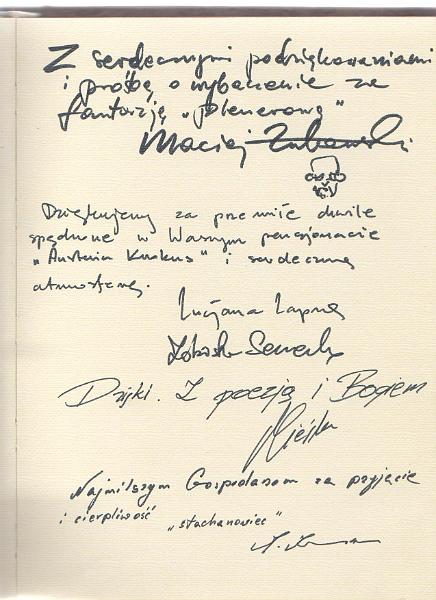 Z serdecznymi podziękowaniami
i prośbę o wybaczenie za
fantazję „plenerową"
Maciej
Dziękujemy za przemiłe chwile
spędzone w Waszym pensjonacie
„Austeria Krokus" i serdeczną
atmosferę.
Lucjana
Dzięki. Z poezją i Bogiem
Najmilszym Gospodarzom za przyjęcie
i cierpliwość „stachanowiec"